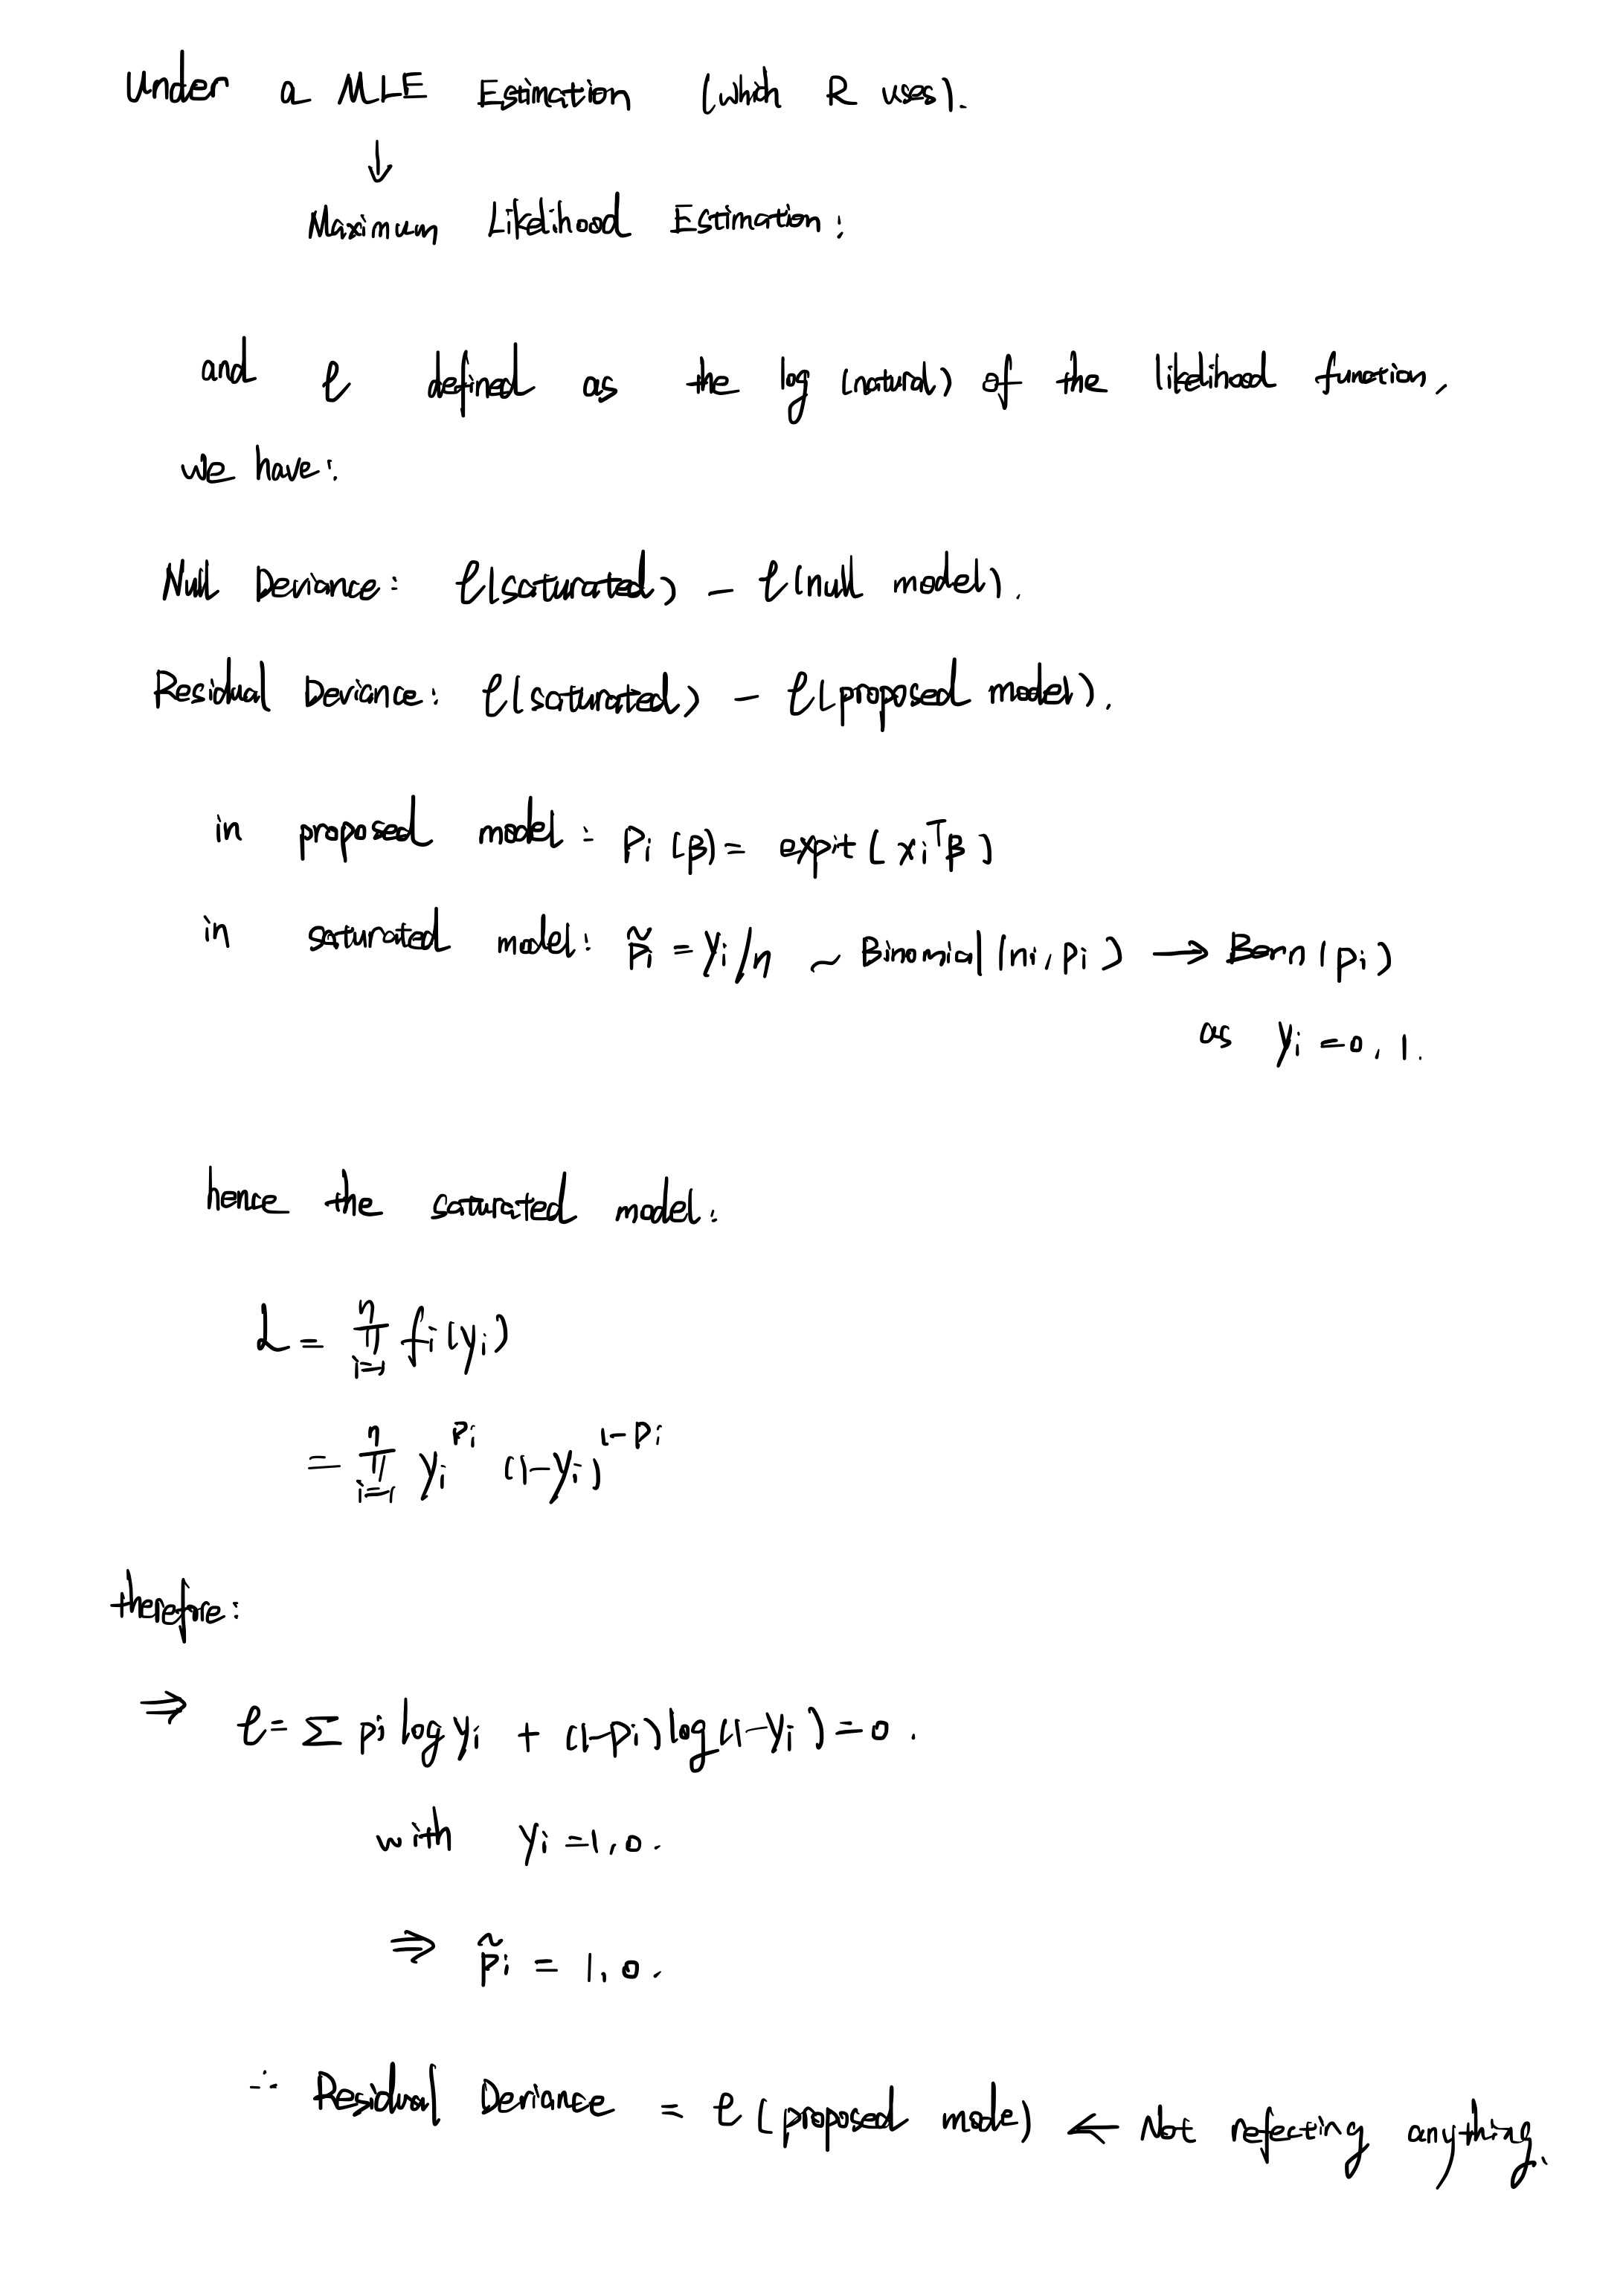 Under a MLE Estimation (which R uses).
↓
Maximum Likelihood Estimation:
and ℓ defined as the log (natural) of the likelihood function,
we have:
Null Deviance: ℓ(saturated) – ℓ(null model).
Residual Deviance: ℓ(saturated) – ℓ(proposed model).
in proposed model: Pi (β) = expit(xiᵀβ)
in saturated model: p̃i = yi/n ~ Binomial(ni, pi) → Bern(pi)
as yi = 0, 1.
hence the saturated model:
L = ∏ⁿᵢ₌₁ fi(yi)
= ∏ⁿᵢ₌₁ yi^Pi (1–yi)^1–Pi
therefore:
⇒ ℓ = Σ pi log yi + (1–pi) log(1–yi) = 0.
with yi = 1, 0.
⇒ p̃i = 1, 0.
∴ Residual Deviance = ℓ(proposed mode) ← Not reflecting anything.